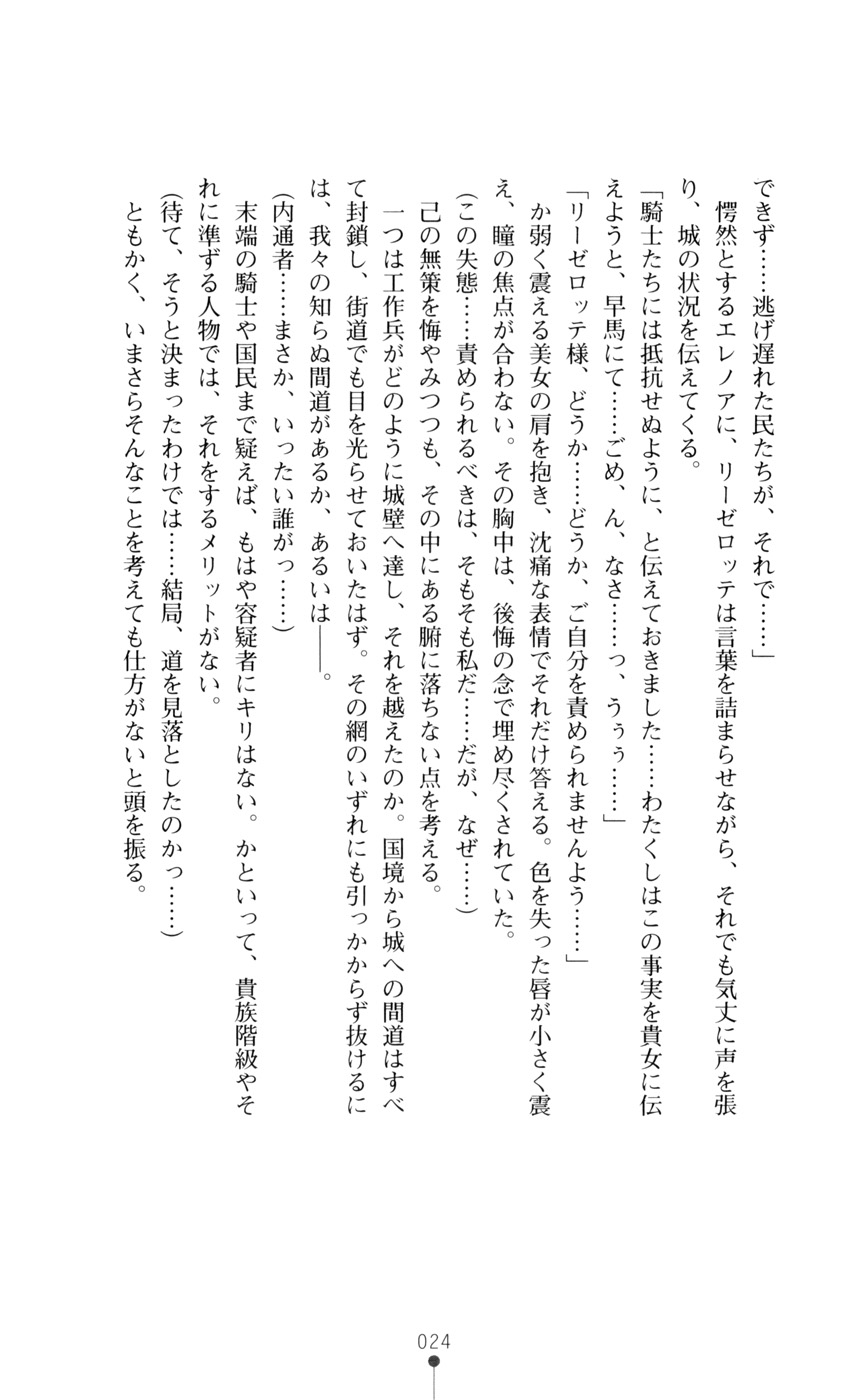 できず……逃げ遅れた民たちが、それで……」
　愕然とするエレノアに、リーゼロッテは言葉を詰まらせながら、それでも気丈に声を張
り、城の状況を伝えてくる。
「騎士たちには抵抗せぬように、と伝えておきました……わたくしはこの事実を貴女に伝
えようと、早馬にて……ごめ、ん、なさ……っ、うぅぅ……」
「リーゼロッテ様、どうか……どうか、ご自分を責められませんよう……」
　か弱く震える美女の肩を抱き、沈痛な表情でそれだけ答える。色を失った唇が小さく震
え、瞳の焦点が合わない。その胸中は、後悔の念で埋め尽くされていた。
(この失態……責められるべきは、そもそも私だ……だが、なぜ……)
　己の無策を悔やみつつも、その中にある腑に落ちない点を考える。
　一つは工作兵がどのように城壁へ達し、それを越えたのか。国境から城への間道はすべ
て封鎖し、街道でも目を光らせておいたはず。その網のいずれにも引っかからず抜けるに
は、我々の知らぬ間道があるか、あるいは――。
(内通者……まさか、いったい誰がっ……)
　末端の騎士や国民まで疑えば、もはや容疑者にキリはない。かといって、貴族階級やそ
れに準ずる人物では、それをするメリットがない。
(待て、そうと決まったわけでは……結局、道を見落としたのかっ……)
　ともかく、いまさらそんなことを考えても仕方がないと頭を振る。
024